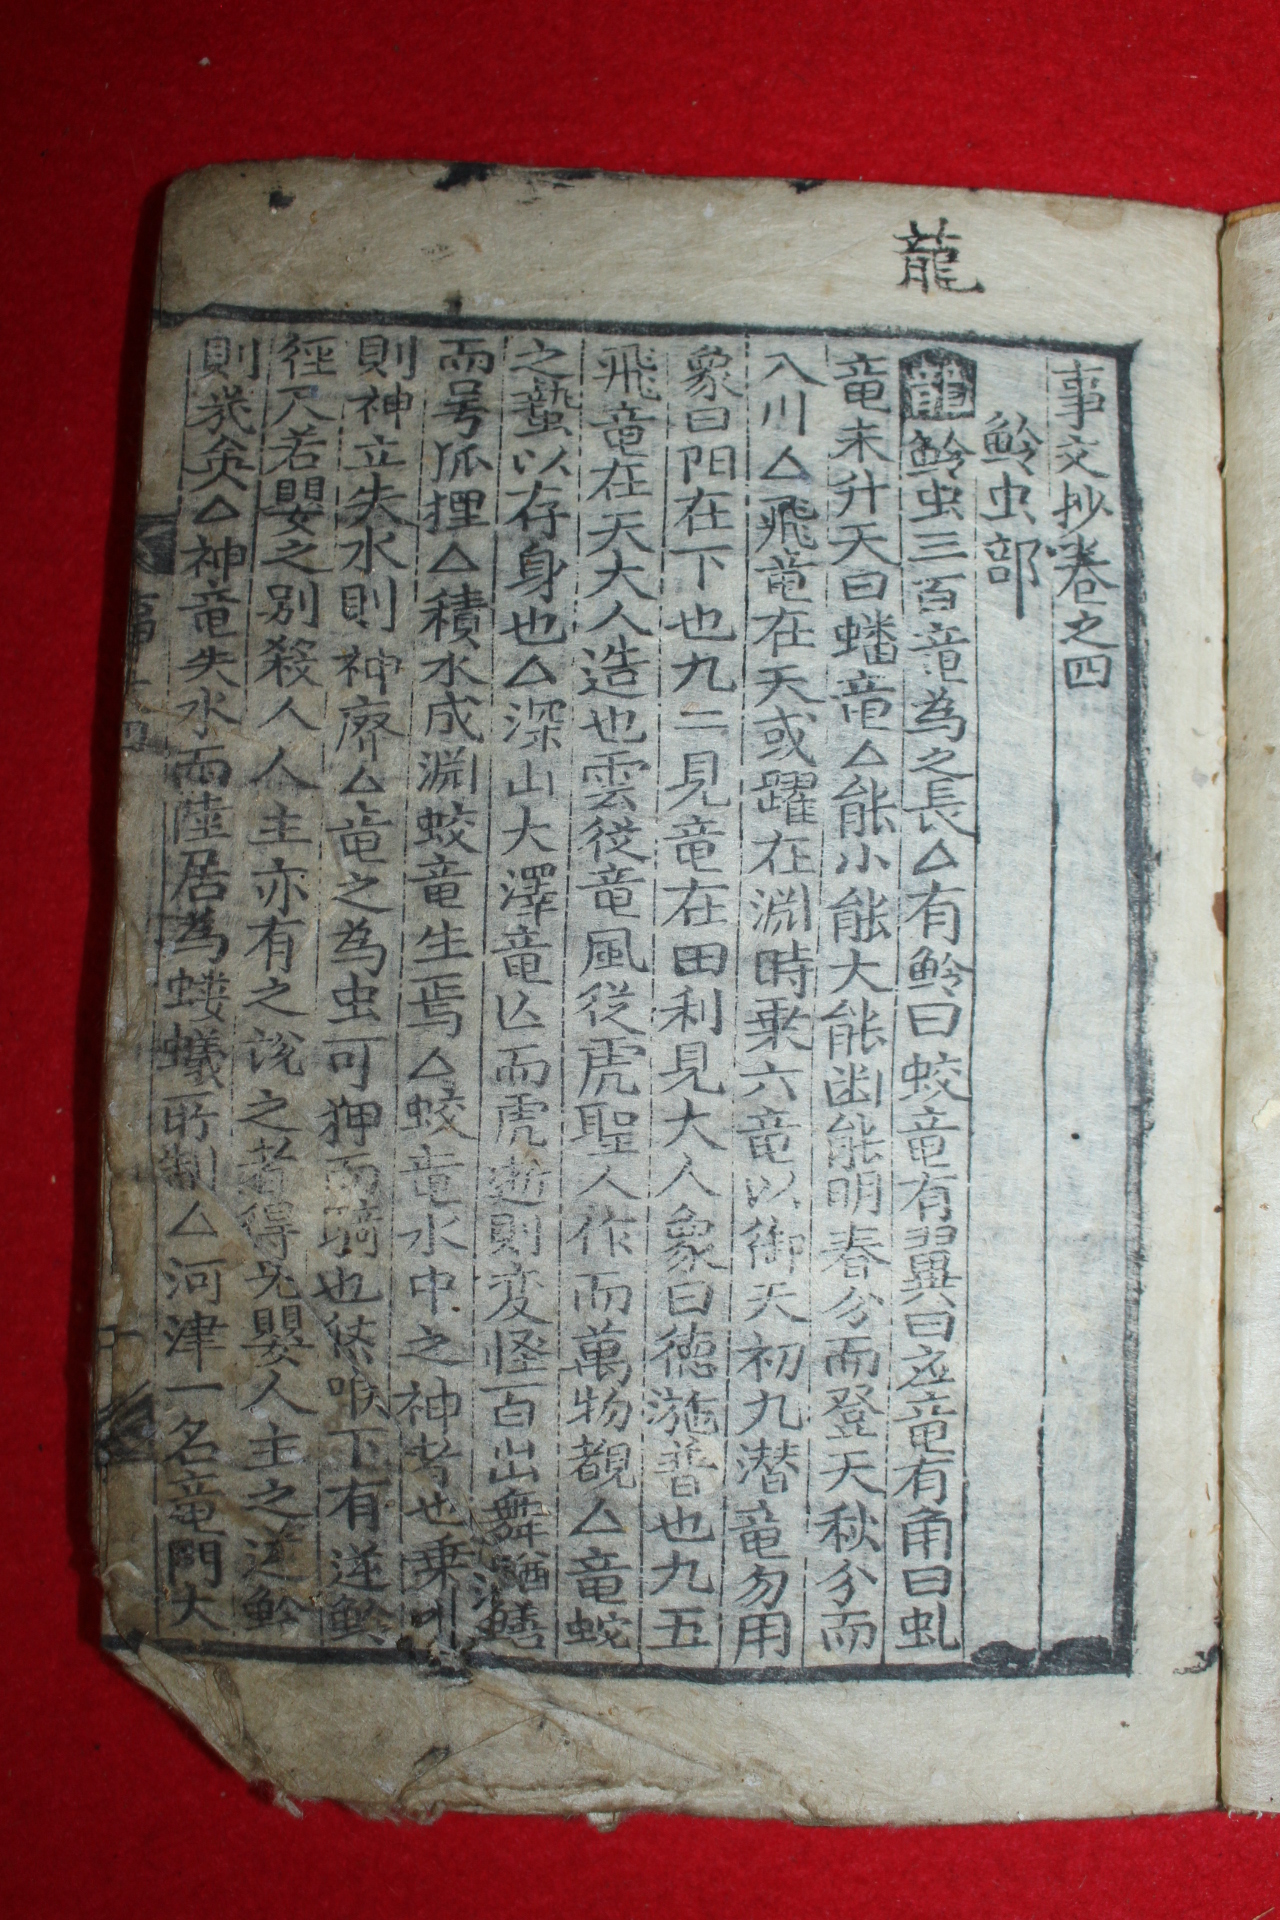 龍
事文抄卷之四
鱗虫部
龍鱗虫三百竜為之長△有鱗曰蛟竜有翼曰应竜有角曰虬
竜未升天曰蟠竜△能小能大能幽能明春分而登天秋分而
入川△飛竜在天或躍在淵時乗六竜以御天初九潜竜勿用
象曰阳在下也九二見竜在田利見大人象曰德施普也九五
飛竜在天大人造也雲從竜風從虎聖人作而萬物覩△竜蛇
之蟄以存身也△深山大澤竜亡而虎逝則変怪百出舞鰌鱔
而号狐狸△積水成淵蛟竜生焉△蛟竜水中之神者也乗水
則神立失水則神廃△竜之為虫可狎而騎也然喉下有逆鱗
徑尺若嬰之則殺人人主亦有之說之者得无嬰人主之逆鱗
則幾矣△神竜失水而陸居為螻蟻所制△河津一名竜門大